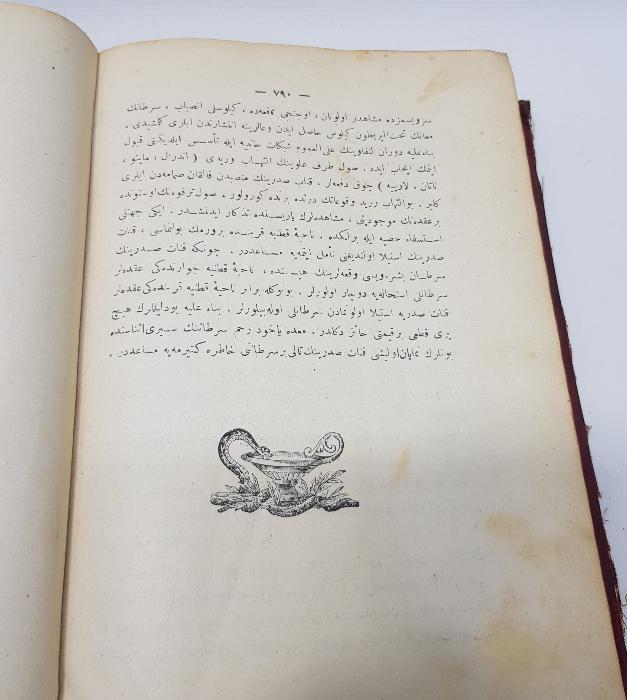 — ٧٩٠ —
سرویسمزده مشاهدر اولونان ، اوچنجی دفعه‌ده ، کیلوسی انصباب ، سرطانك
معانك تحت البریطون کیلوس حاصل ایدن وعالرینه انتشارندن ایلری کلمشیدی .
بناءعلیه دوران لنفاوینك علی‌العموم شبکات جانبیه ایله تأسس ایلدیکنی قبول
ایتمك ایجاب ایدر . صول طرف علوینك التهاب وریدی ( اندرال ، مایتو ،
ناتان . لارییه ) چوق دفعه‌لر ، قنات صدرینك هنـ بدن قالقان صمامه‌دن ایلری
کلیر . بوالتهاب ورید وقوعاتك درتده برنده کورولور . صول ترقوه‌نك اوستونده
برعقده‌نك موجودیتی ، مشاهده‌لرك یاریسـنده تذکار ایدلمشـدر . ایکی جهتلی
استسقاء خصیه ایله برلکده . ناحیهٔ قطنیه قربنـده برورمك بولنماسی ، قنات
صدرینك استیلا اولندیغنی تأمل ایتمه‌یه مسـاعددر . چونکه قنات صـدرینك
سرطـان بشروینی وقعه‌لرینك هپسـنده ، ناحیهٔ قطنیه جوارنده‌کی عقده‌لر
سرطانی استحاله‌یه دوچار اولورلر . بونوکله برابر ناحیهٔ قطنیه قربنده‌کی عقده‌لر
قنات صدریه استیلا اولونمادن سرطانی اوله‌بیلورلر . بناء علیه بودلیللرك هیـچ
بری قطعی برقیمتی حائز دکلدر . معده یاخود رحم سرطاننك سـیری اثناسنده
بونلرك نمایان اولیشی قنات صدرینك تالی برسرطاننی خاطره کتیرمه‌یه مساعددر .